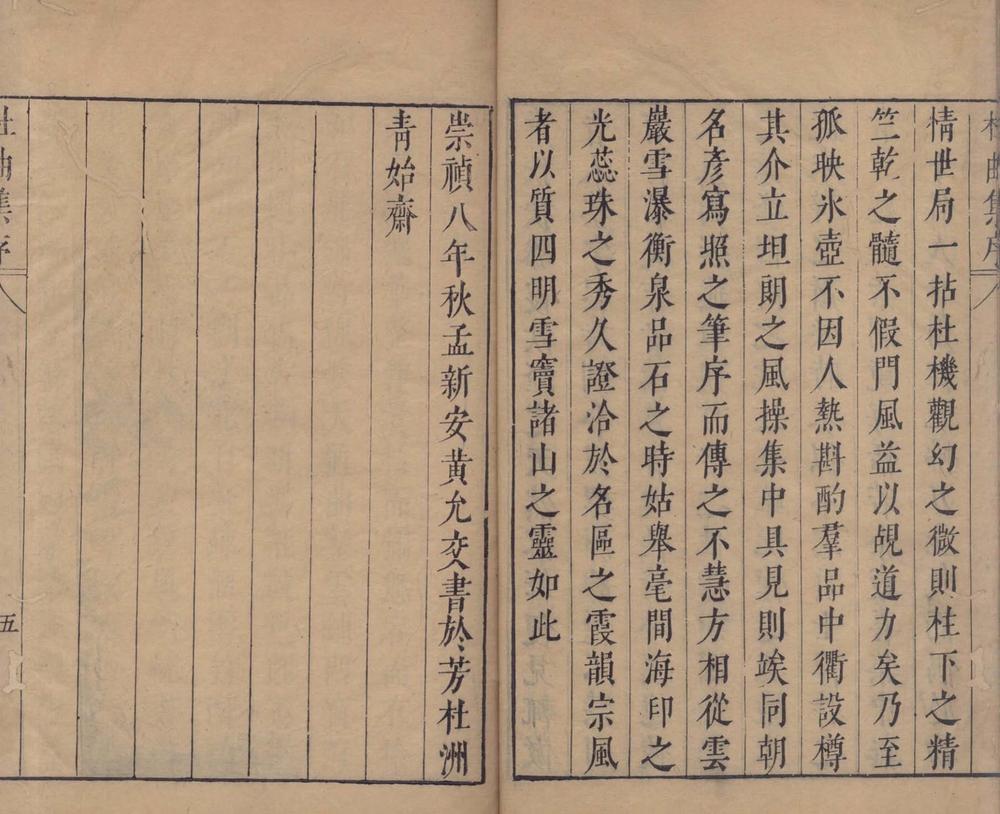 杜曲集序
情世局一拈杜機觀幻之微則柱下之精
竺乾之髓不假門風益以覘道力矣乃至
孤映氷壺不因人熱斟酌羣品中衢設樽
其介立坦朗之風操集中具見則竢同朝
名彥寫照之筆序而傳之不慧方相從雲
巖雪瀑衡泉品石之時姑舉毫間海印之
光蕊珠之秀久證洽於名區之霞韻宗風
者以質四明雪竇諸山之靈如此
崇禎八年秋孟新安黃允交書於芳杜洲
靑始齋
杜曲集序
五